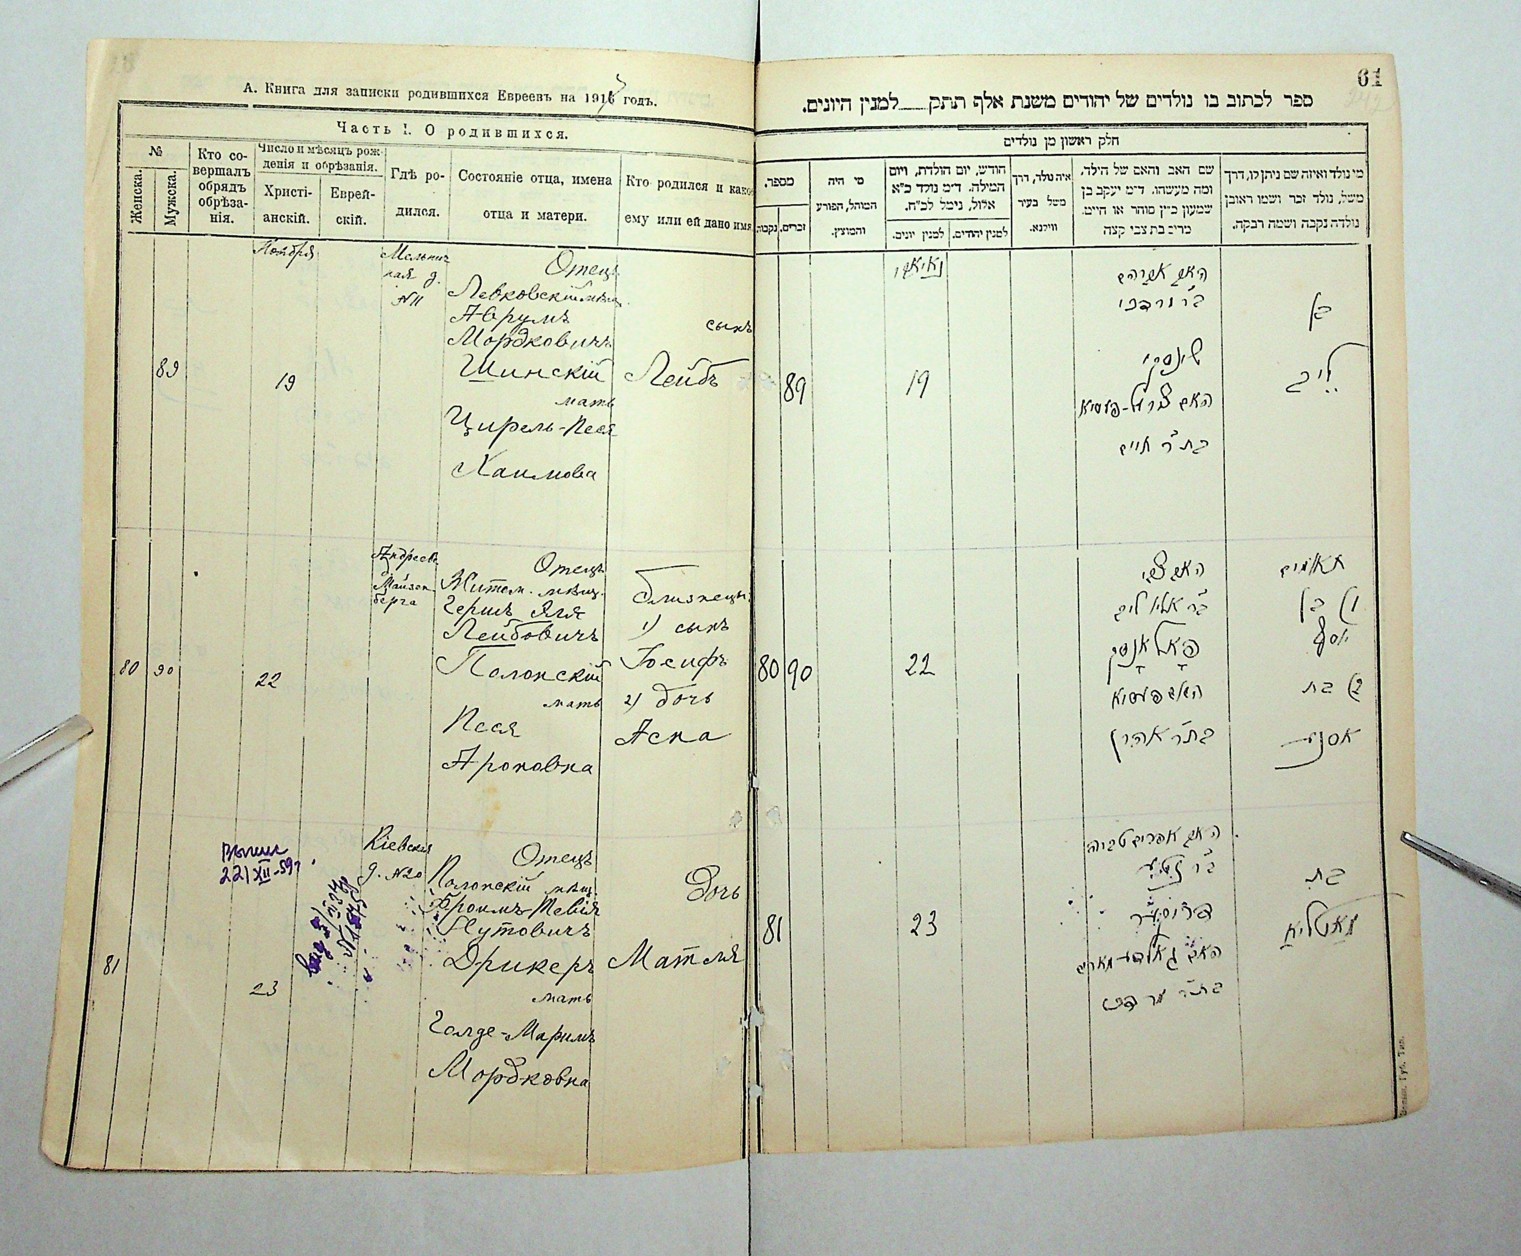 А. Книга для записки родившихся Евреевъ на 1917 годъ.
Часть I. О родившихся.
№
Женска.
Мужска.
Кто со-
вершалъ
обрядъ
обрѣза-
нія.
Число и мѣсяцъ рож-
денія и обрѣзанія.
Христі-
анскій.
Еврей-
скій.
Гдѣ ро-
дился.
Состояніе отца, имена
отца и матери.
Кто родился и какое
ему или ей дано имя.
Ноября
89
19
д.
№11
Отецъ
Левковскій мѣщ.
Аврумъ
Мордковичъ
Шинскій
мать
Цирель-Песя
Хаимова
сынъ
Лейбъ
80 90
22
Андреев.
д.
Майзен-
берга
Отецъ
Житом. мѣщ.
Гершъ
Лейбовичъ
Полонскій
мать
Песя
Ароновна
близнецы
1) сынъ
Іосифъ
2) дочь
Асна
81
23
22/XII-59г.
Кіевская
д. №20
Отецъ
Полонскій мѣщ.
Фроимъ-Тевія
Нутовичъ
Дрикеръ
мать
Голде-Маримъ
Мордковна
Дочь
Матля
61
ספר לכתוב בו נולדים של יהודים משנת אלף תתק למנין היונים.
חלק ראשון מן נולדים
מספר.
נקבות.
זכרים.
מי היה
המוהל, הפורע
והמוצץ.
חודש, יום הולדת, ויום
המילה. ד״מ נולד כ״א
אלול, נימל לכ״ח.
למנין יונים.
למנין יהודים.
איה נולד, דרך
משל בעיר
ווילנא.
שם האב והאם של הילד,
ומה מעשהו. ד״מ יעקב בן
שמעון כ״ץ סוחר או חייט.
מרים בת צבי קצה
מי נולד ואיזה שם ניתן לו, דרך
משל, נולד זכר ושמו ראובן
נולדה נקבה ושמה רבקה.
89
19
האב אברהם
ב״ר מרדכי
שינסקי
האם צירל-פעסיא
בת ר׳ חיים
בן
לייב
80 90
22
האב צבי
ב״ר אליו לייב
פאלאנסקי
האם פעסיא
בת ר׳ אהרן
תאומים
1) בן
יוסף
2) בת
אסנת
81
23
האב אפרים טביה
דריקער
האם גאלדע-מארים
בת ר׳ מרדכי
בת
מאטליא